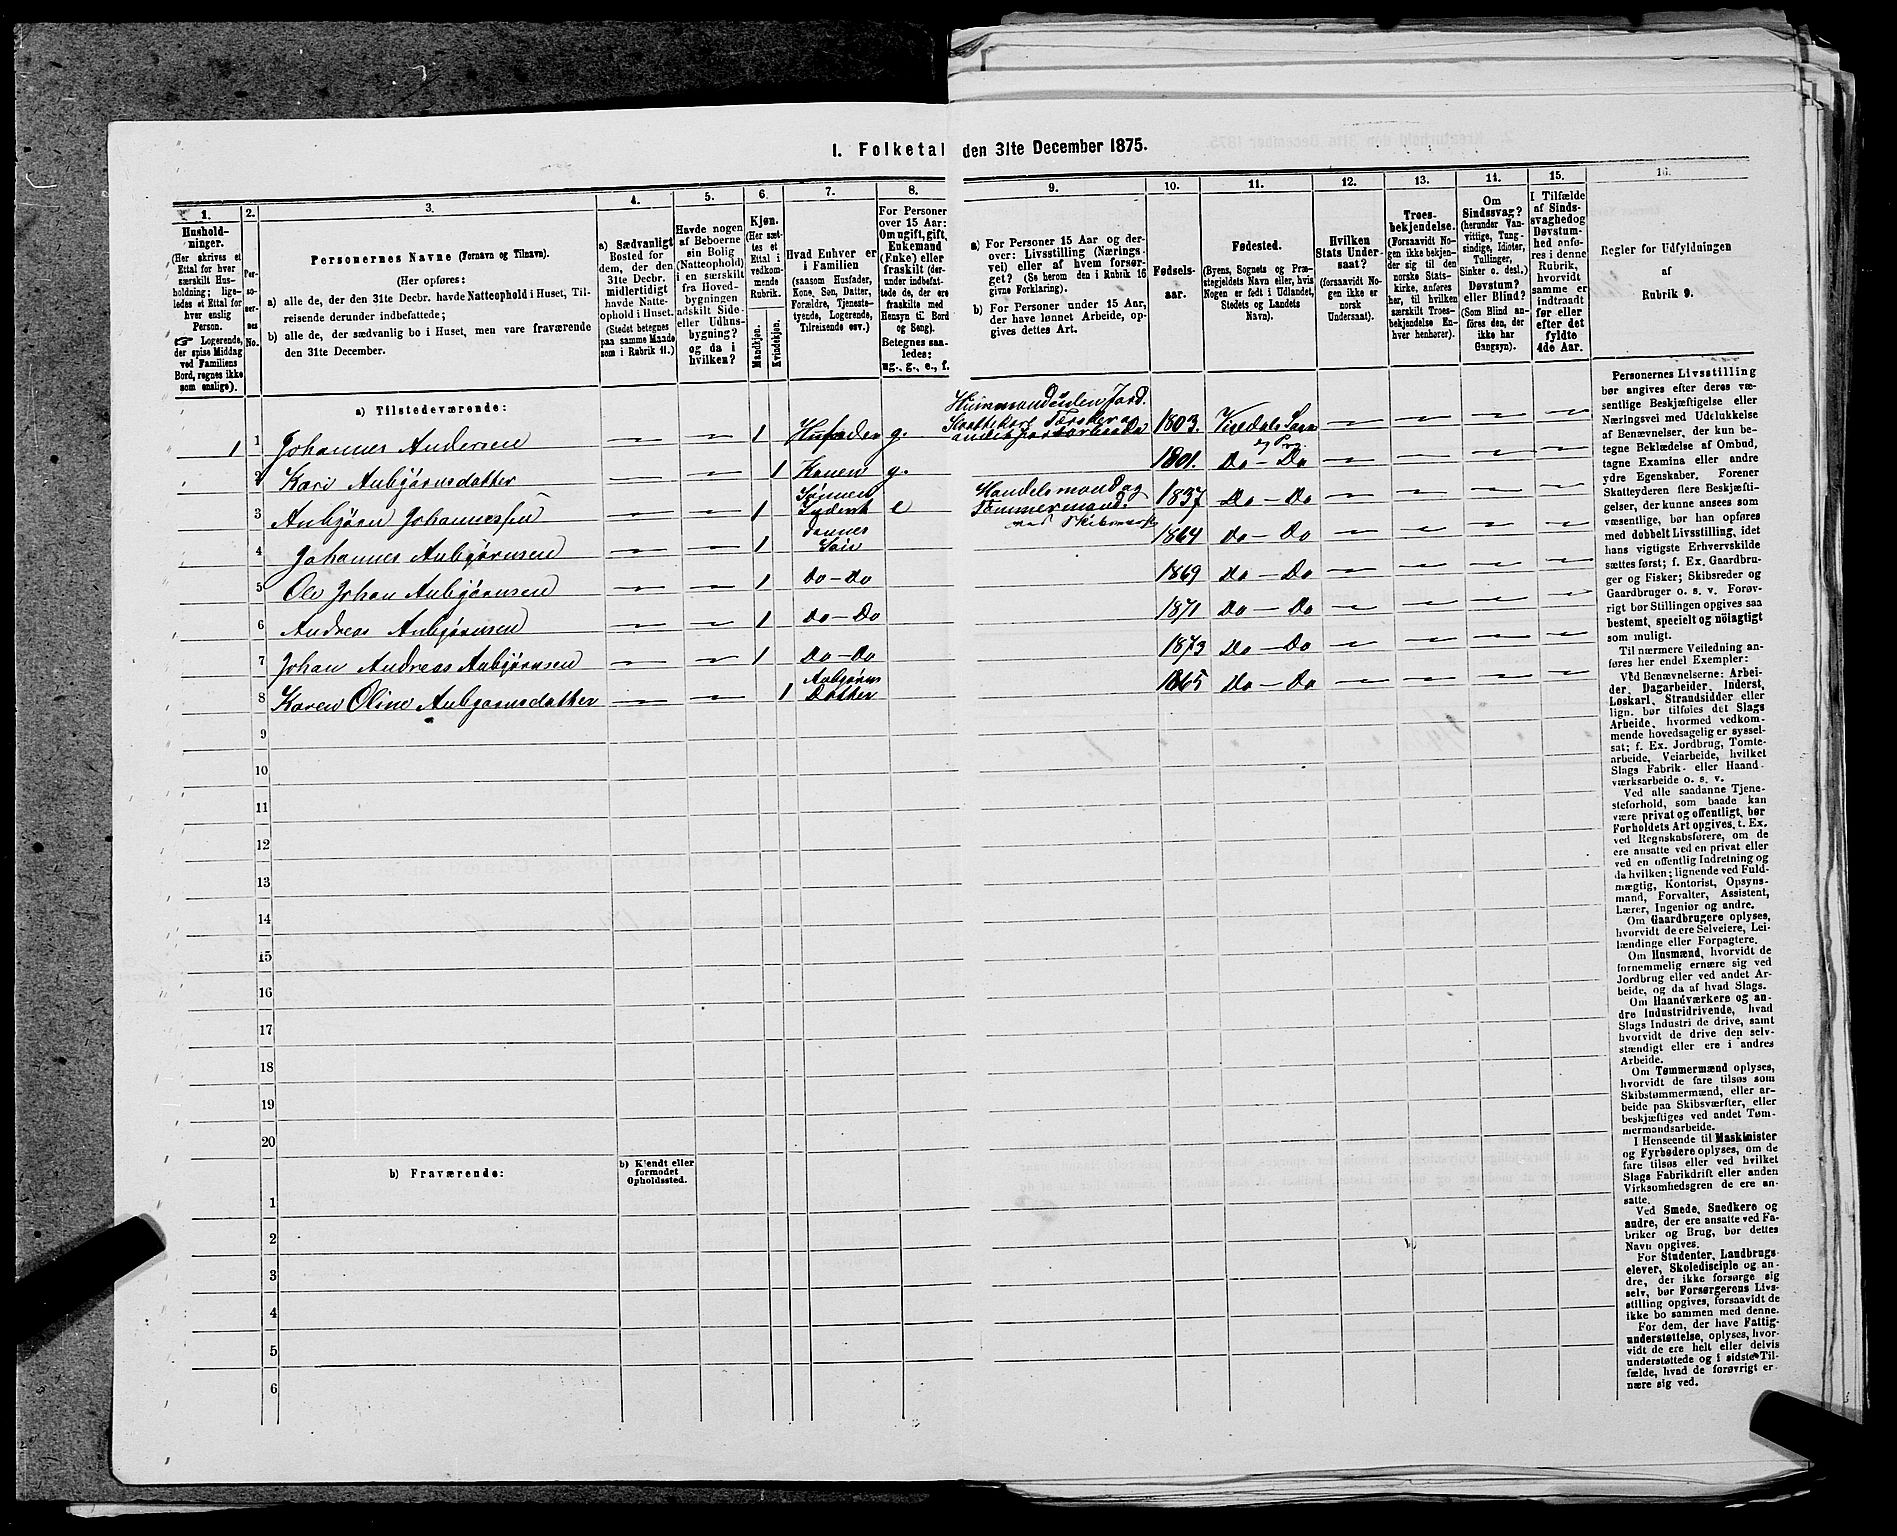 I. Folketal den 31te December 1875.
1.
Hushold-
ninger.
(Her skrives et
Ettal for hver
særskilt Hus-
holdning; lige-
ledes et Ettal for
hver enslig
Person.
Logerende,
der spise Middag
ved Familiens
Bord, regnes ikke
som enslige).
2.
Per-
so-
ner-
nes
No.
3.
Personernes Navne (Fornavn og Tilnavn).
(Her opføres:
a) alle de, der den 31te Decbr. havde Natteophold i Huset, Til-
reisende derunder indbefattede;
b) alle de, der sædvanlig bo i Huset, men vare fraværende
den 31te December.
4.
a) Sædvanligt
Bosted for
dem, der den
31te Decbr.
midlertidigt
havde Natte-
ophold i Huset.
(Stedet betegnes
paa samme Maade
som i Rubrik 11.)
5.
Havde nogen
af Beboerne
sin Bolig
(Natteophold)
i en særskilt
fra Hoved-
bygningen
adskilt Side-
eller Udhus-
bygning?
og da i
hvilken?
6.
Kjøn.
(Her sæt-
tes et
Ettal i
vedkom-
mende
Rubrik.
Mandkjøn.
Kvindekjøn.
7.
Hvad Enhver er
i Familien
(saasom Husfader,
Kone, Søn, Datter,
Forældre, Tjeneste-
tyende, Logerende,
Tilreisende osv.)
8.
For Personer
over 15 Aar:
Om ugift, gift,
Enkemand
(Enke) eller
fraskilt (der-
under indbefat-
tede de, der ere
fraskilte med
Hensyn til Bord
og Seng).
Betegnes saa-
ledes:
ug., g., e., f.
9.
a) For Personer 15 Aar og der-
over: Livsstilling (Nærings-
vei) eller af hvem forsør-
get? (Se herom den i Rubrik 16
givne Forklaring).
b) For Personer under 15 Aar,
der have lønnet Arbeide, op-
gives dettes Art.
10.
Fødsels-
aar.
11.
Fødested.
(Byens, Sognets og Præ-
stegjeldets Navn eller, hvis
Nogen er født i Udlandet,
Stedets og Landets
Navn).
12.
Hvilken
Stats Under-
saat?
(forsaavidt No-
gen ikke er
norsk
Undersaat).
13.
Troes-
bekjendelse.
(Forsaavidt No-
gen ikke bekjen-
der sig til den
norske Stats-
kirke, anføres
her, til hvilken
særskilt Troes-
bekjendelse En-
hver henhører).
14.
Om
Sindssvag?
(herunder Van-
vittige, Tung-
sindige, Idioter,
Tullinger,
Sinker o. desl.)
Døvstum?
eller Blind?
(Som Blind an-
føres den, der
ikke har
Gangsyn).
15.
I Tilfælde
af Sinds-
svaghed og
Døvstum-
hed anfø-
res i denne
Rubrik,
hvorvidt
samme er
indtraadt
før eller
efter det
fyldte
4de Aar.
16.
Regler for Udfyldningen
af
Rubrik 9.
a) Tilstedeværende:
1 1 Johannes Andersen 1 g. 1803.
2 Kari Anbjørnsdatter 1 Konen g. 1801. Do – Do
3 Anbjørn Johannessen 1 Sønnen e Handelsmand og Tømmermand. 1837 Do – Do
4 Johannes Anbjørnsen 1 dennes Søn 1864 Do – Do
5 Ole Johan Anbjørnsen 1 Do – Do 1869 Do – Do
6 Andreas Anbjørnsen 1 Do – Do 1871 Do – Do
7 Johan Andreas Anbjørnsen 1 Do – Do 1873 Do – Do
8 Karen Oline Anbjørnsdatter 1 Anbjørns Datter 1865 Do – Do
9
10
11
12
13
14
15
16
17
18
19
20
b) Fraværende:
b) Kjendt eller
formodet
Opholdssted.
1
2
3
4
5
6
Personernes Livsstilling
bør angives efter deres væ-
sentlige Beskjæftigelse eller
Næringsvei med Udelukkelse
af Benævnelser, der kun be-
tegne Beklædelse af Ombud,
tagne Examina eller andre
ydre Egenskaber. Forener
Skatteyderen flere Beskjæfti-
gelser, der kunne ansees som
væsentlige, bør han opføres
med dobbelt Livsstilling, idet
hans vigtigste Erhvervskilde
sættes først; f. Ex. Gaardbru-
ger og Fisker; Skibsreder og
Gaardbruger o. s. v. Forøv-
rigt bør Stillingen opgives saa
bestemt, specielt og nøiagtigt
som muligt.
Til nærmere Veiledning an-
føres her endel Exempler:
Ved Benævnelserne: Arbei-
der, Dagarbeider, Inderst,
Løskarl, Strandsidder eller
lign. bør tilføies det Slags
Arbeide, hvormed vedkom-
mende hovedsagelig er syssel-
sat; f. Ex. Jordbrug, Tomte-
arbeide, Veiarbeide, hvilket
Slags Fabrik- eller Haand-
værksarbeide o. s. v.
Ved alle saadanne Tjene-
steforhold, som baade kan
være privat og offentligt, bør
Forholdets Art opgives, t. Ex.
ved Regnskabsførere, om de
ere ansatte ved en privat eller
ved en offentlig Indretning og
da hvilken; lignende ved Fuld-
mægtig, Kontorist, Opsyns-
mand, Forvalter, Assistent,
Lærer, Ingeniør og andre.
Om Gaardbrugere oplyses,
hvorvidt de ere Selveiere, Lei-
lændinge eller Forpagtere.
Om Husmænd, hvorvidt de
fornemmelig ernære sig ved
Jordbrug eller ved andet Ar-
beide, og da af hvad Slags.
Om Haandværkere og an-
dre Industridrivende, hvad
Slags Industri de drive, samt
hvorvidt de drive den selv-
stændigt eller ere i andres
Arbeide.
Om Tømmermænd oplyses,
hvorvidt de fare tilsøs som
Skibstømmermænd, eller ar-
beide paa Skibsværfter, eller
beskjæftiges ved andet Tøm-
mermandsarbeide.
I Henseende til Maskinister
og Fyrbødere oplyses, om de
fare tilsøs eller ved hvilket
Slags Fabrikdrift eller anden
Virksomhedsgren de ere an-
satte.
Ved Smede, Snedkere og
andre, der ere ansatte ved Fa-
briker og Brug, bør dettes
Navn opgives.
For Studenter, Landbrugs-
elever, Skoledisciple og an-
dre, der ikke forsørge sig
selv, bør Forsørgerens Livs-
stilling opgives, forsaavidt de
ikke bo sammen med denne.
For dem, der have Fattig-
understøttelse, oplyses, hvor-
vidt de ere helt eller delvis
understøttede og i sidste Til-
fælde, hvad de forøvrigt er-
nære sig ved.